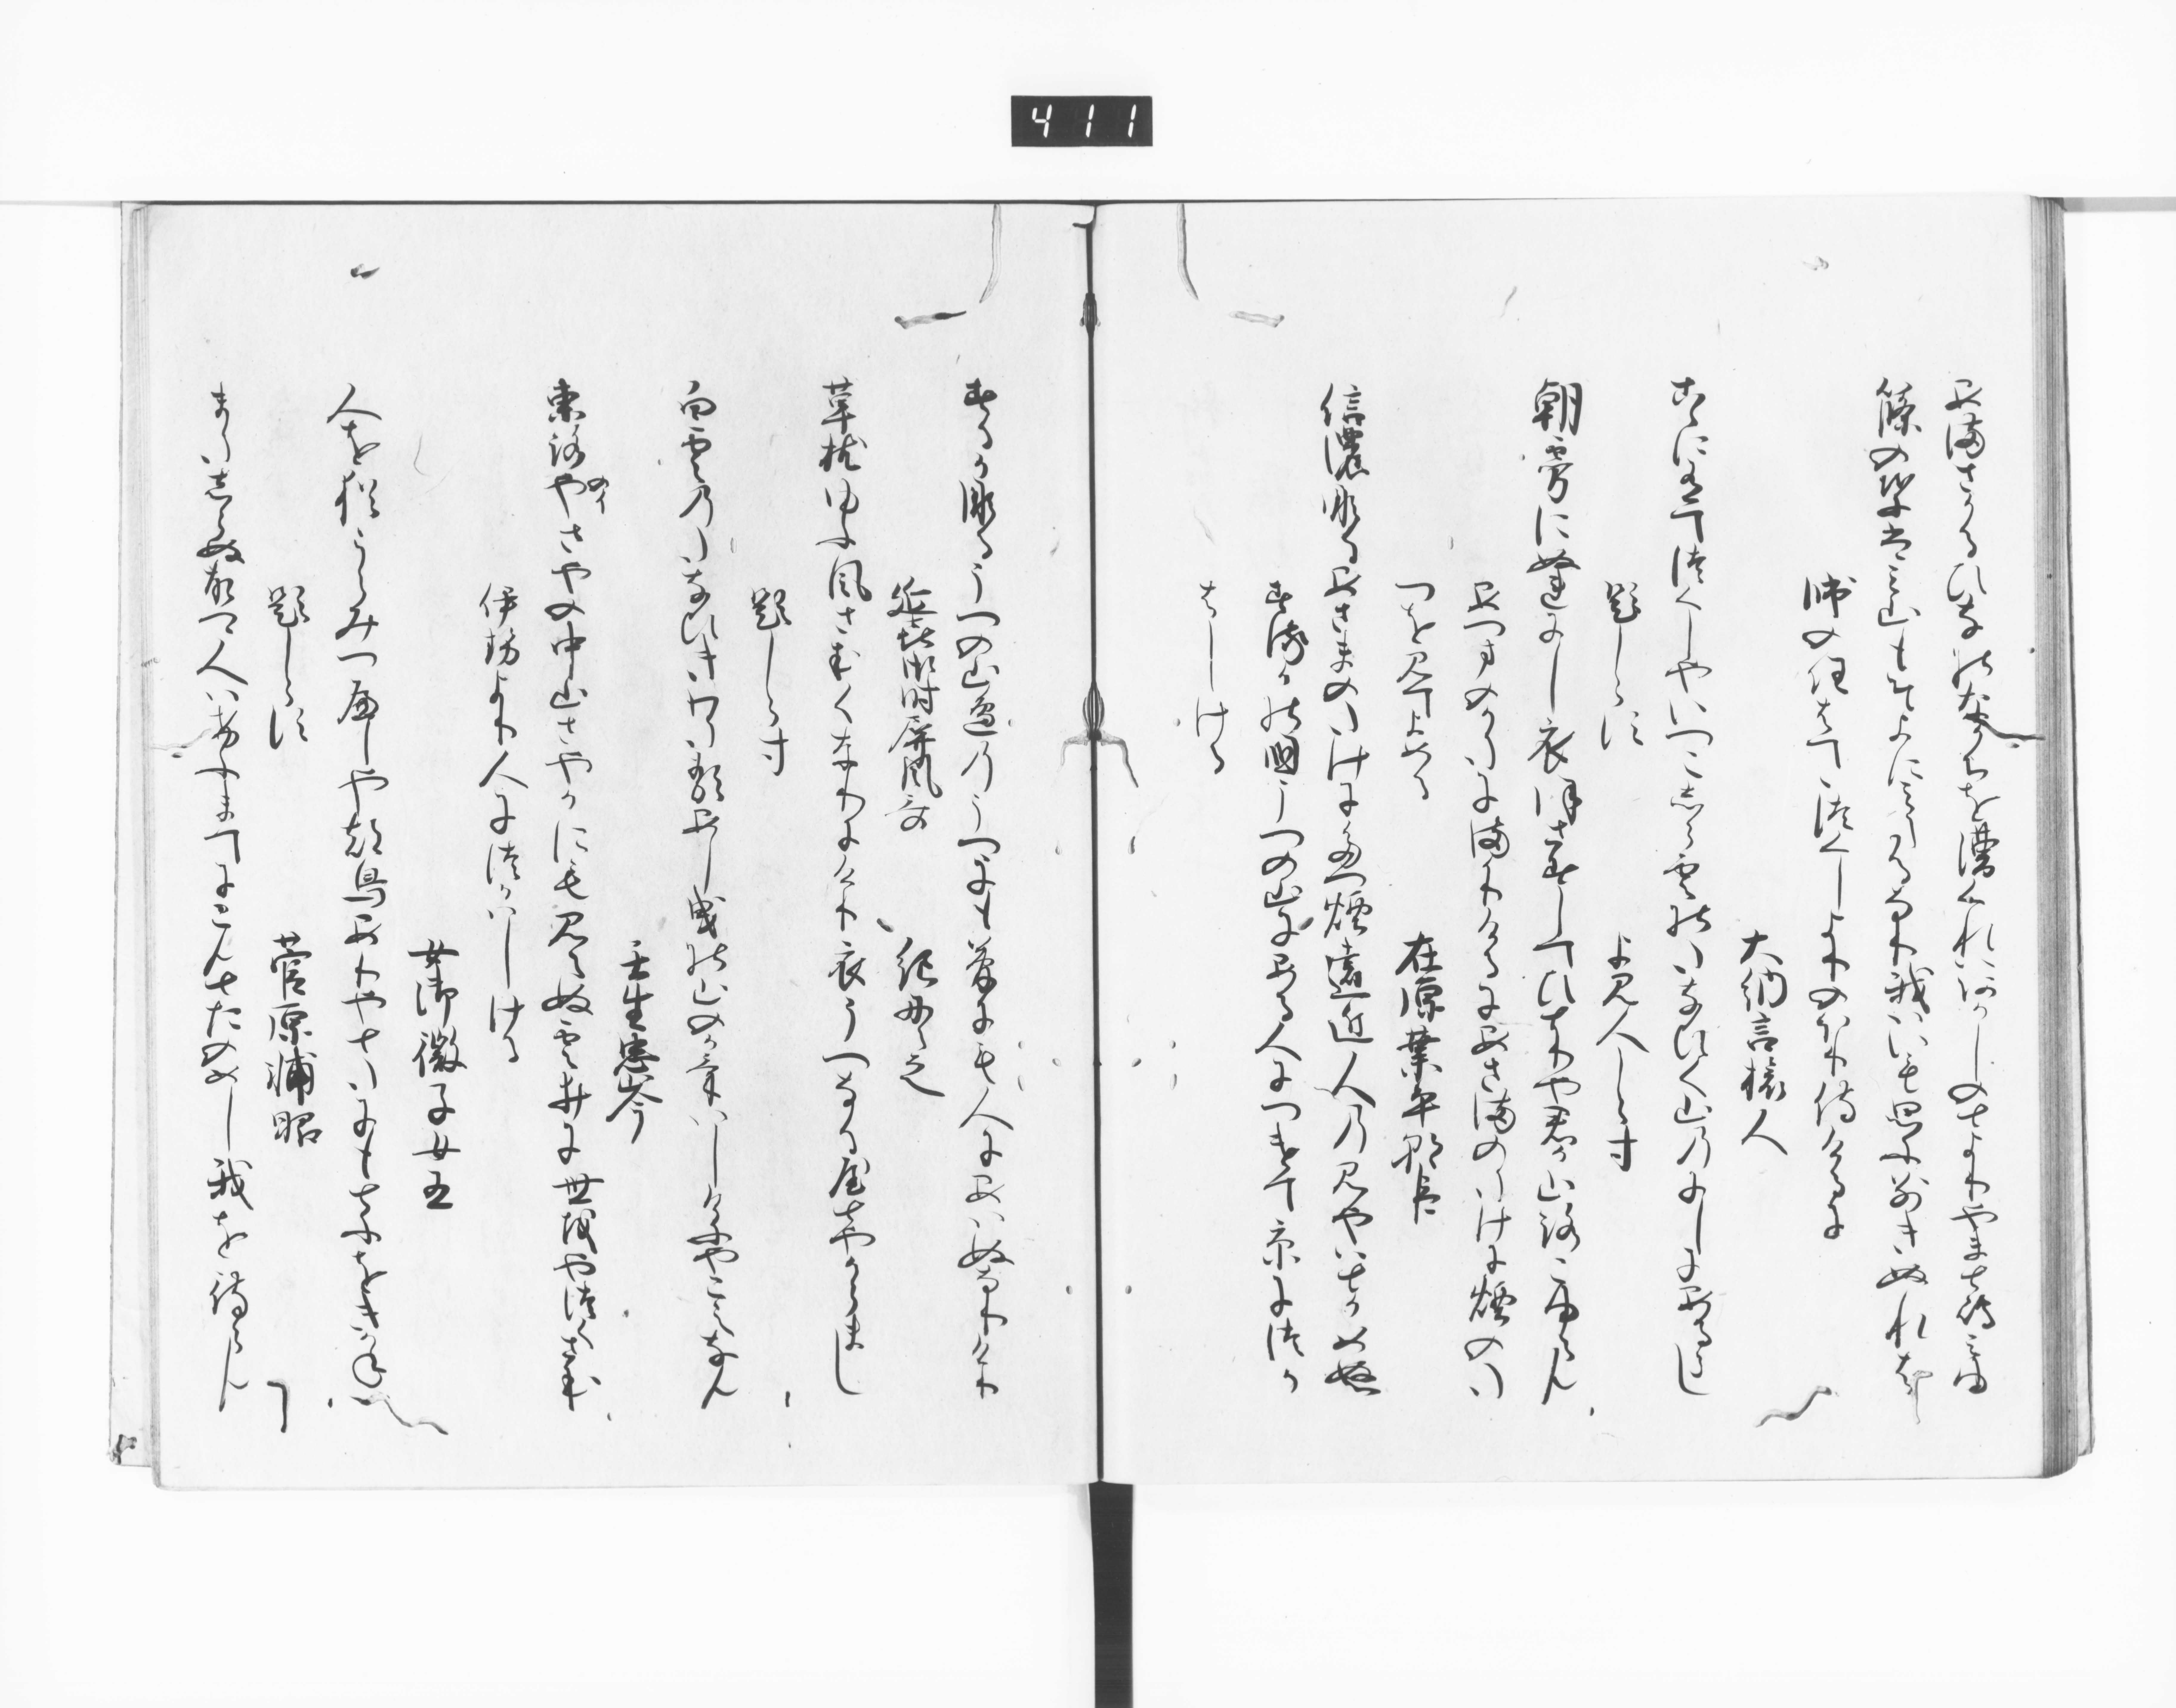 411
あまさかるひなのなかちを漕くれはあかしのとよりやまとしまみゆ
篠の葉はみ山もそよにみたるなり我はいも思ふ別きぬれは
帥の任はてゝ筑紫よりのほり侍けるに
大納言旅人
こゝに有て筑紫やいつこしら雲の棚ひく山のにしにあるらし
題しらす
よみ人しらす
朝霧にぬれにし衣ほさすしてひとりや君か山路こゆらん
あつまのかたにまかりけるにあさまのたけに煙のた
つを見てよめる
在原業平朝臣
信濃なるあさまのたけにたつ煙遠近人の見やはとかめぬ
するかの国うつの山にあへる人につけて京につか
はしける
するかなるうつの山邊のうつゝにも夢にも人にあはぬなりけり
延喜御時屏風哥
紀貫之
草枕ゆふ風さむくなりにけり衣うつなる宿やからまし
題しらす
白雲のたなひきわたるあしひきの山のかけはしけふやこえなん
壬生忠岑
東路やさやの中山さやかにも見えぬ雲井に世をやつくさむ
のイ
伊勢より人につかはしける
女御徽子女王
人を猶うらみつへしや都鳥ありやとたにもとふをきかねは
題しらす
菅原輔昭
またしらぬ故郷人はけふまてにこんとたのめし我を待らん